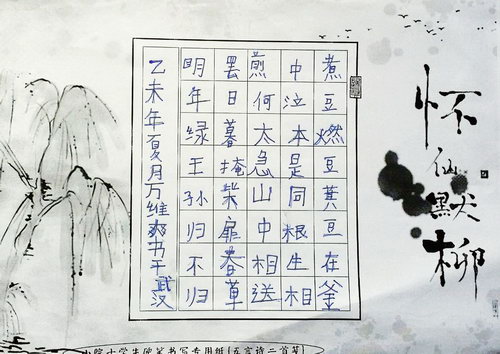 怀仙默柳
煮豆燃豆萁豆在釜
中泣本是同根生相
煎何太急山中相送
罢日暮掩柴扉春草
明年绿王孙归不归
乙未年夏月万维爽书于武汉
学生硬笔书写专用纸(五言诗二首